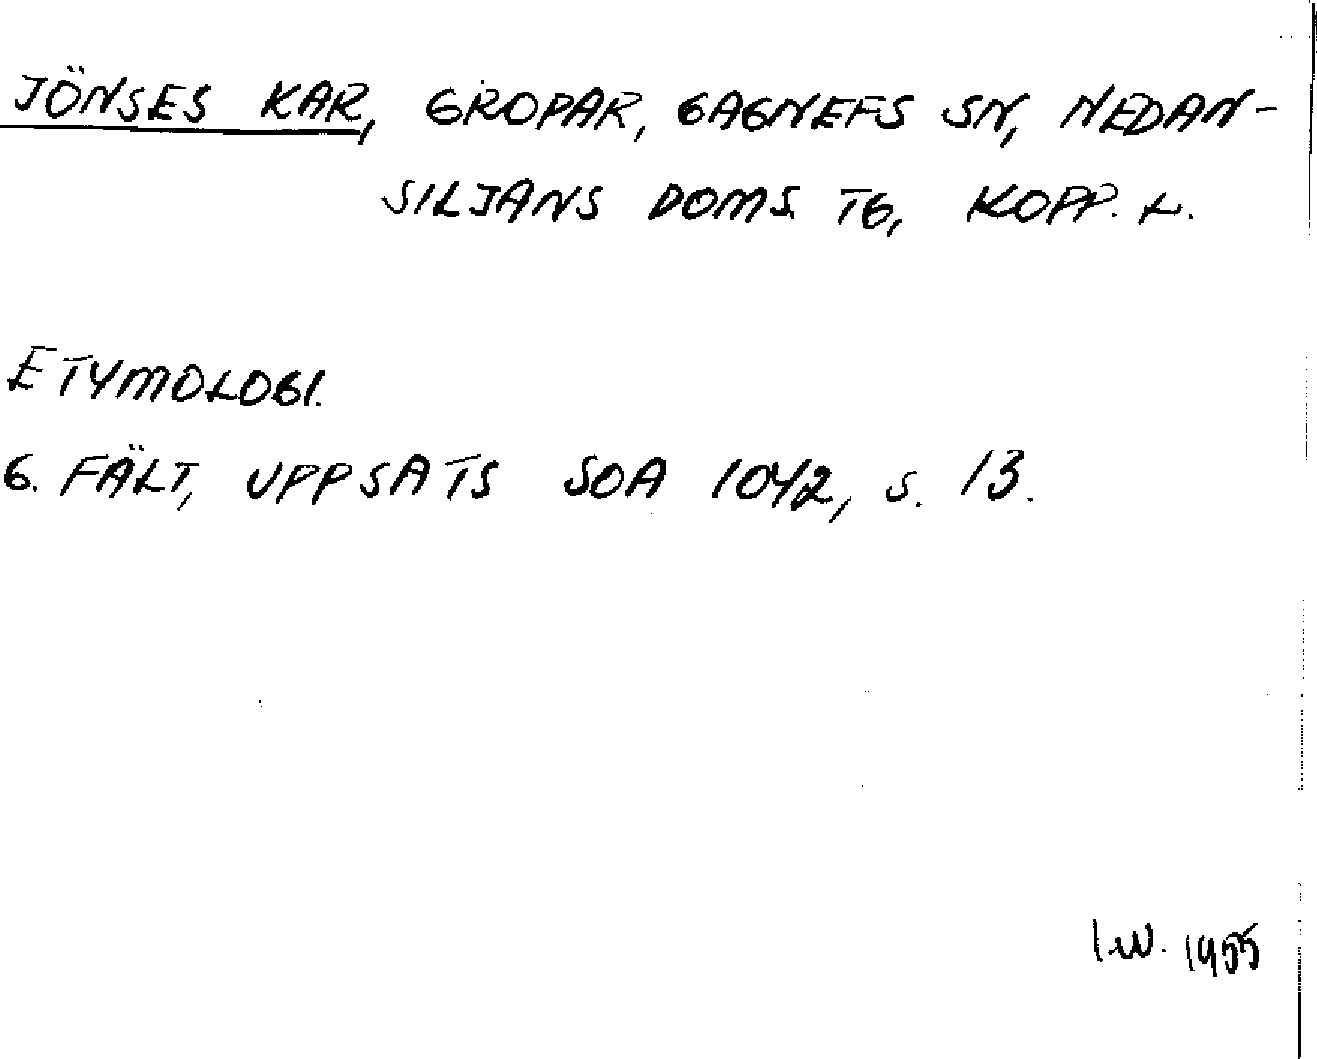 JÖNSES KAR, GROPAR, GAGNEFS SN, NEDAN-
SILJANS DOMS. TG, KOPP. L.
ETYMOLOGI.
G. FÄLT, UPPSATS SOA 1042, s. 13.
I.W. 1955